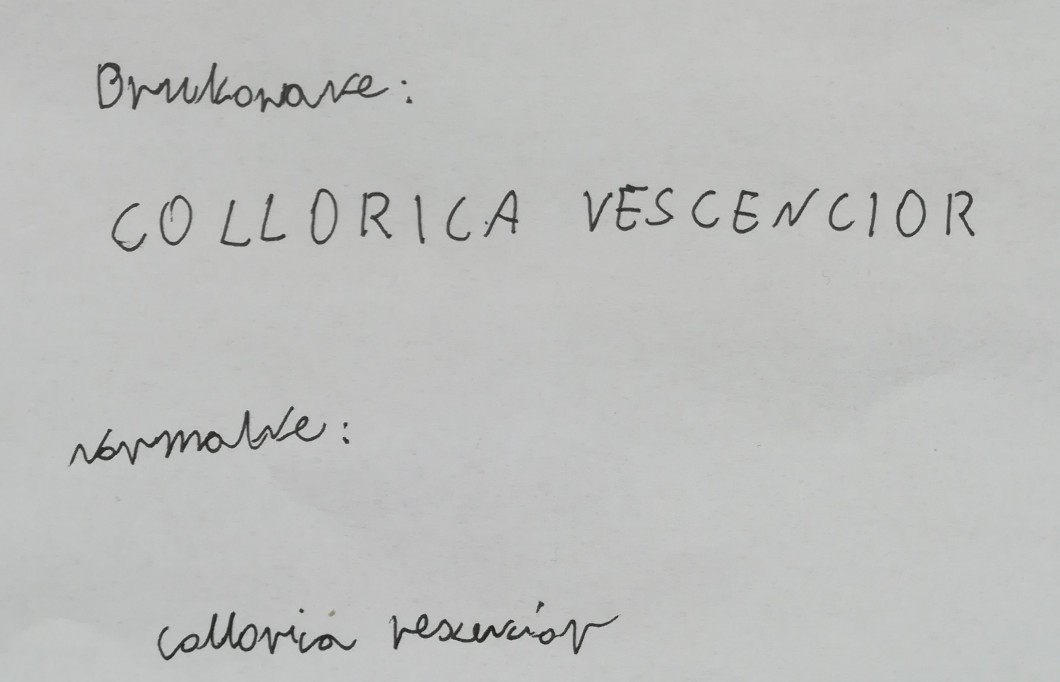 Drukowane:
COLLORICA VESCENCIOR
normalne:
collorica vescencior